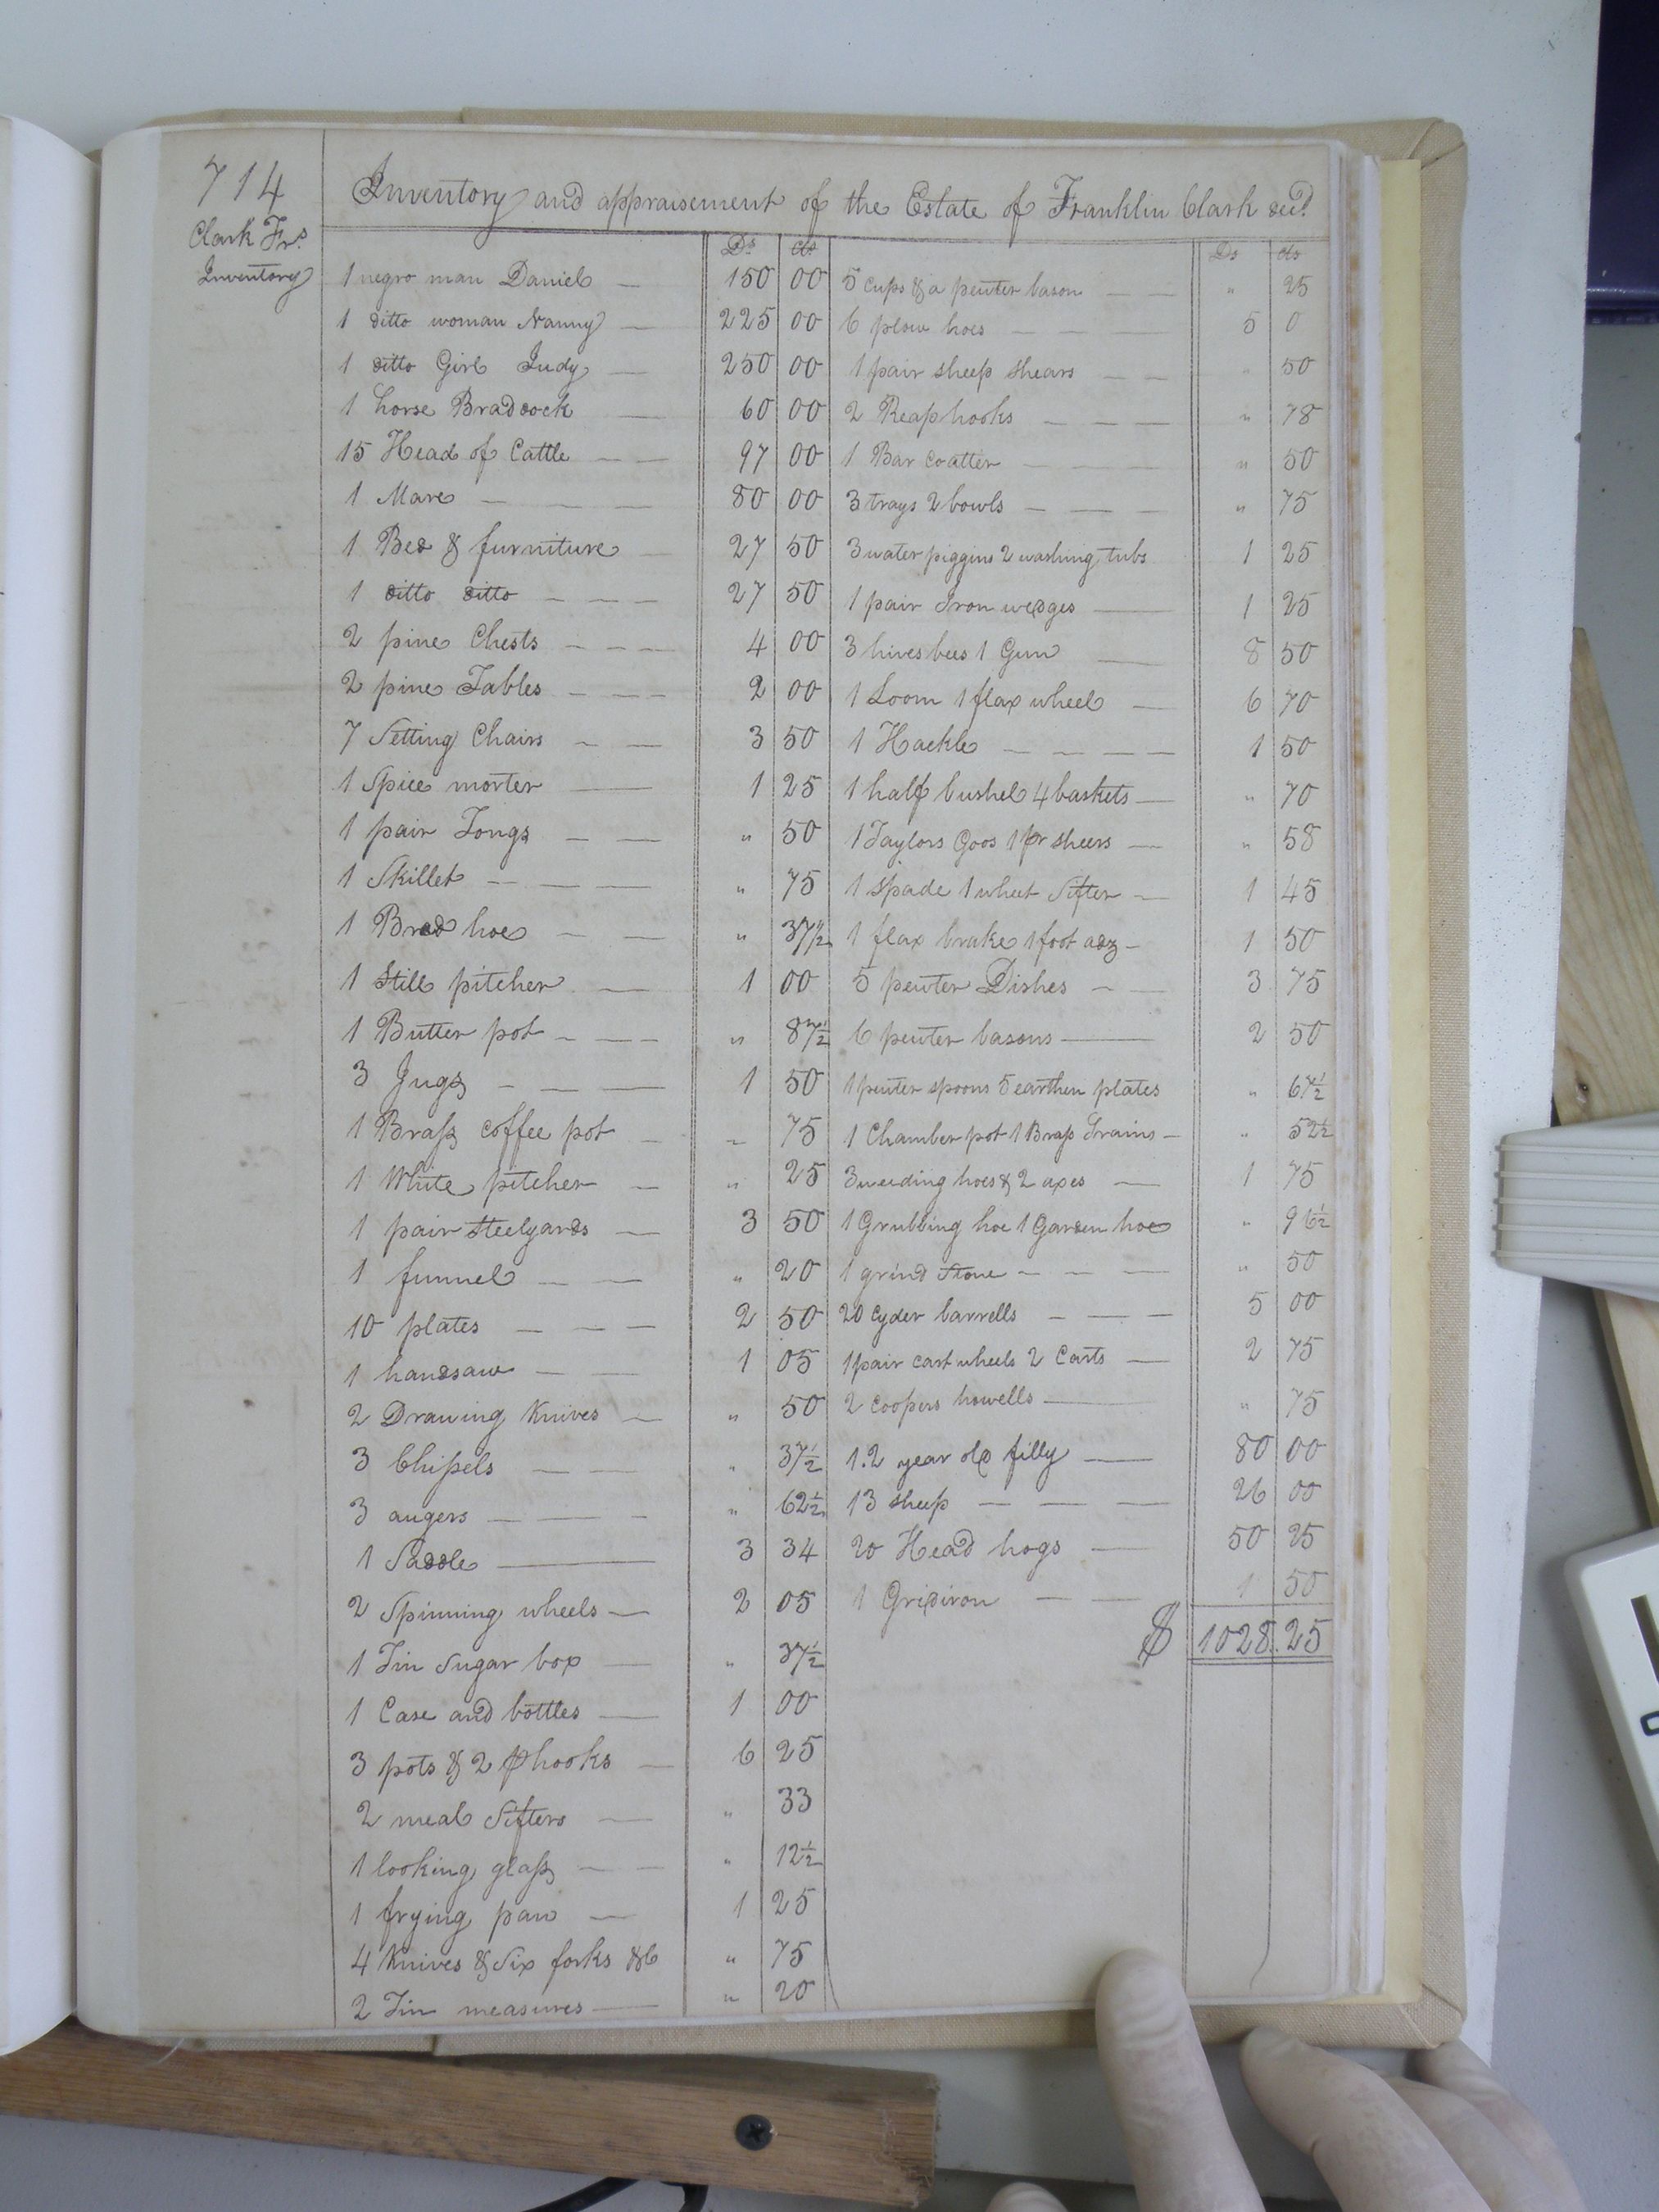 714
Clark Frs
Inventory
Inventory and appraisement of the Estate of Franklin Clark decd.
Ds cts
1 negro man Daniel — 150 00
1 ditto woman Nanny — 225 00
1 ditto Girl Judy — 250 00
1 horse Braddock — 60 00
15 Head of Cattle — — 97 00
1 Mare — — — — 80 00
1 Bed & furniture — 27 50
1 ditto ditto — — — 27 50
2 pine Chests — — — 4 00
2 pine Tables — — — 2 00
7 Setting Chairs — — 3 50
1 Spice morter — 1 25
1 pair Tongs — — " 50
1 Skillet — — — " 75
1 Brod hoe — — " 37½
1 Still pitcher — 1 00
1 Butter pot — — — " 87½
3 Jugs — — — 1 50
1 Brass coffee pot — " 75
1 White pitcher — " 25
1 pair steelyards — 3 50
1 funnel — — " 20
10 plates — — — 2 50
1 handsaw — — 1 05
2 Drawing Knives — " 50
3 Chissels — — " 37½
3 augers — — — " 62½
1 Saddle — 3 34
2 Spinning wheels — 2 05
1 Tin Sugar box — " 37½
1 Case and bottles — 1 00
3 pots & 2 p hooks — 6 25
2 meal Sifters — " 33
1 looking glass — — " 12½
1 frying pan — 1 25
4 Knives & Six forks &c " 75
2 Tin measures — " 20
Ds cts
5 cups & a pewter bason — — " 25
6 plow hoes — — — 5 0
1 pair sheep shears — — " 50
2 Reaphooks — — — " 78
1 Bar Coatter — — — " 50
3 trays 2 bowls — — — " 75
3 water piggins 2 washing tubs 1 25
1 pair Iron wedges — 1 25
3 hives bees 1 Gun — 8 50
1 Loom 1 flax wheel — 6 70
1 Hackle — — — — 1 50
1 half bushel 4 baskets — " 70
1 Taylors Goos 1 pr sheers — " 58
1 Spade 1 wheet Sifter — 1 45
1 flax brake 1 foot adz — 1 50
5 pewter Dishes — — 3 75
6 pewter basons — 2 50
1 pewter spoons 5 earthen plates " 67½
1 Chamber pot 1 Brass Trains — " 52½
3 weeding hoes & 2 axes — 1 75
1 Grubbing hoe 1 Garden hoe " 96½
1 grind Stone — — — " 50
20 Cyder barrells — — — 5 00
1 pair cart wheels 2 Carts — 2 75
2 Coopers howells — " 75
1. 2 year old filly — 80 00
13 sheep — — — 26 00
20 Head hogs — 50 25
1 Gridiron — — 1 50
$ 1028.25